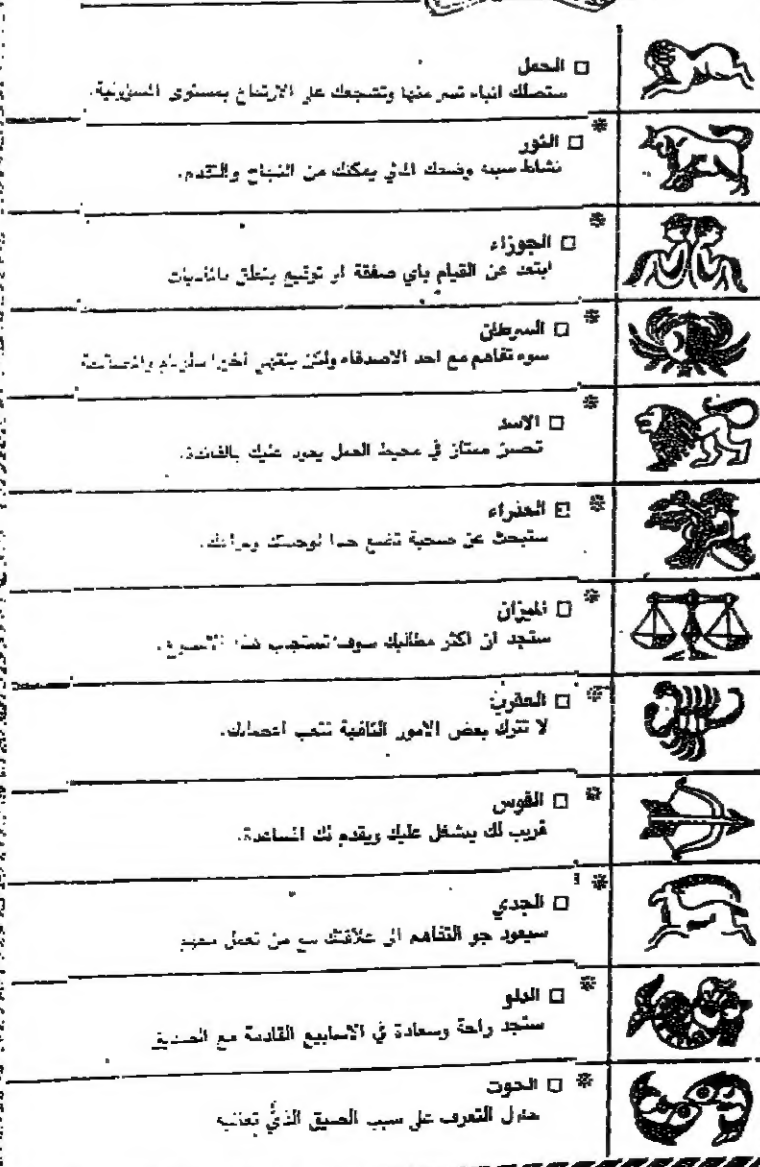 □ الحمل
ستصلك انباء تسر منها وتشجعك على الارتفاع بمستوى المسؤولية.
□ الثور
نشاط سببه وضعك الذي يمكنك من النجاح والتقدم.
□ الجوزاء
ابتعد عن القيام بأي صفقة او توقيع يتعلق بالماديات
□ السرطان
سوء تفاهم مع احد الاصدقاء ولكن ينتهي اخيرا
□ الاسد
تحسن ممتاز في محيط العمل يعود عليك بالفائدة.
□ العذراء
ستبحث عن صحبة تضع حدا لوحدتك
□ الميزان
ستجد ان اكثر مطالبك سوف تستجاب هذا الاسبوع.
□ العقرب
لا تترك بعض الامور التافهة تتعب اعصابك.
□ القوس
قريب لك ينشغل عليك ويقدم لك المساعدة.
□ الجدي
سيعود جو التفاهم الى علاقتك مع من تعمل معهم
□ الدلو
ستجد راحة وسعادة في الاسابيع القادمة مع
□ الحوت
حاول التعرف على سبب الضيق الذي تعانيه